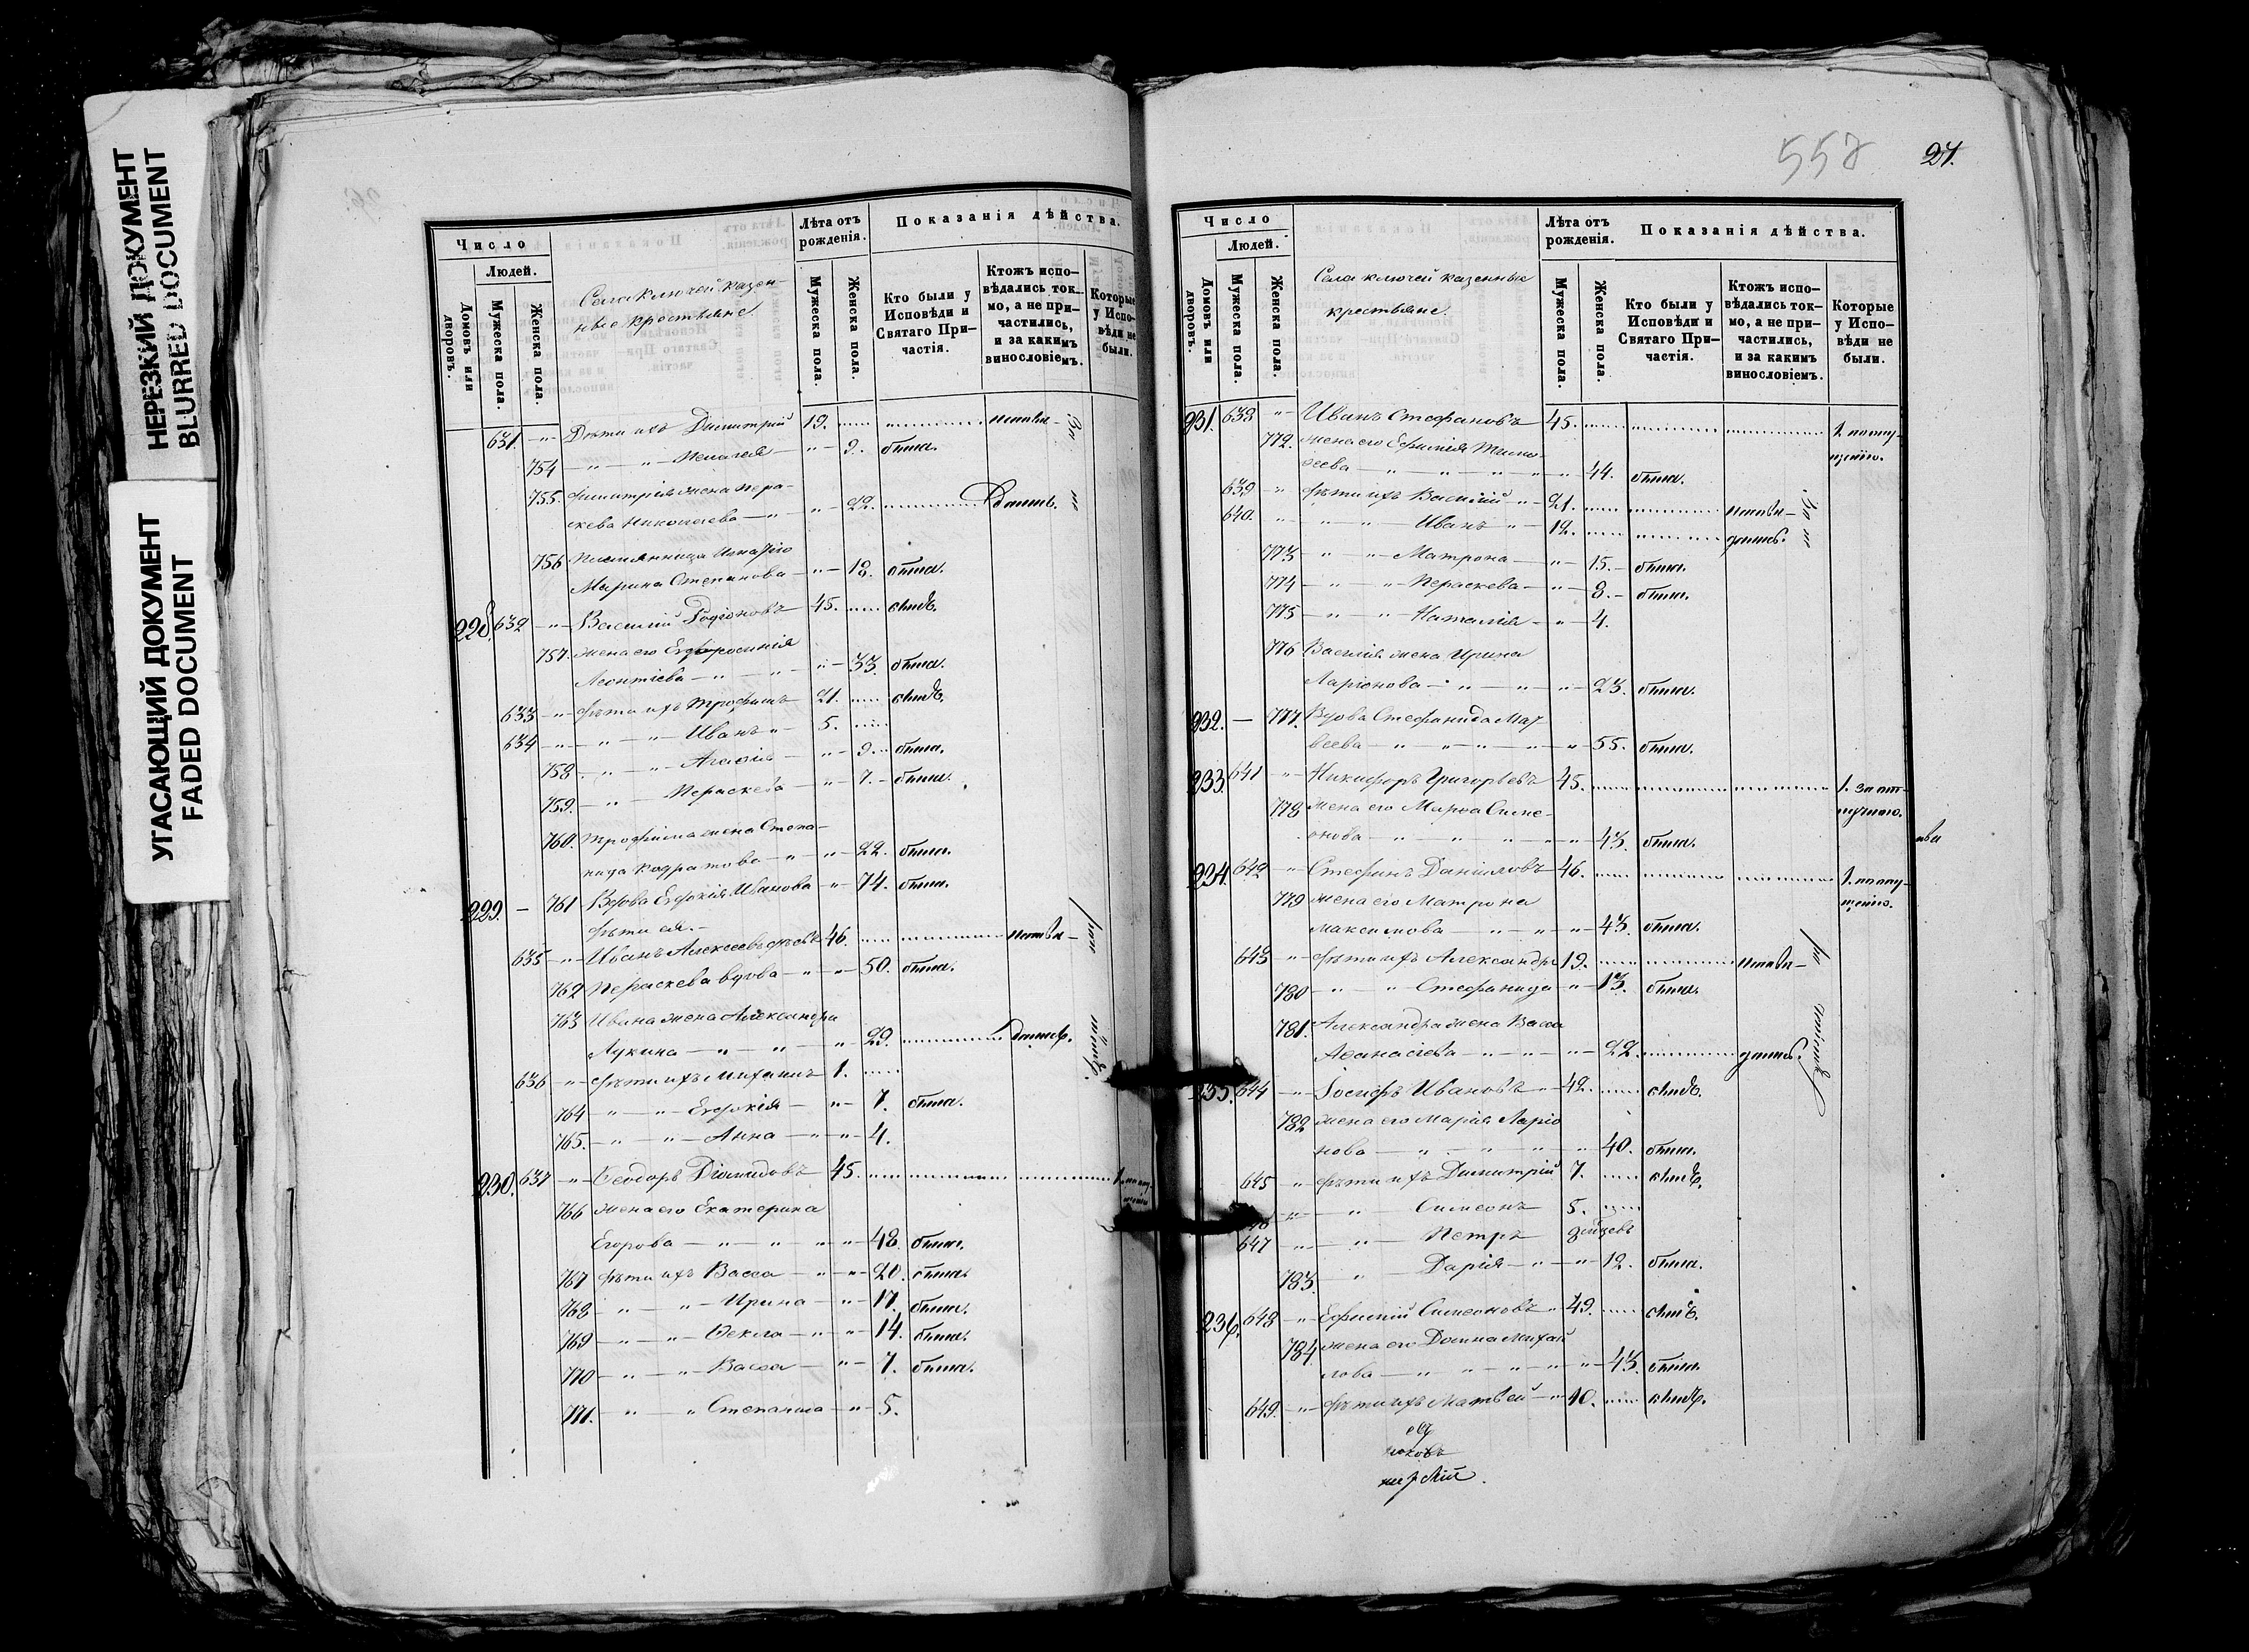 НЕРЕЗКИЙ ДОКУМЕНТ
BLURRED DOCUMENT
УГАСАЮЩИЙ ДОКУМЕНТ
FADED DOCUMENT
Число
Людей.
Домовъ или дворовъ.
Мужеска пола.
Женска пола.
Села Ключей казен-
ные крестьяне.
Лѣта отъ рожденія.
Мужеска пола.
Женска пола.
Показанія дѣйства.
Кто были у Исповѣди и Святаго При-частія.
Ктожъ испо-вѣдались ток-мо, а не при-частились, и за какимъ винословіемъ.
Которые у Испо-вѣди не были.
631. Дѣти ихъ Димитрій 19.
754 Пелагея 9. была.
755. Димитрія жена Пара-
скева Николаева 22.
756 племянница
Марина Степанова 18. была.
228. 632 Василій Родіоновъ 45.
757. жена его Евфросинія
Леонтіева 33. была.
633 дѣти ихъ Трофимъ 21.
634 Иванъ 5.
758. Агафія 9. была.
759. Параскева 7. была.
760. Трофима жена Степа-
нида Кодратова 22. была.
229. 761 Вдова Евдокія Иванова 74. была.
дѣти ея.
635 Иванъ Алексеевъ 46.
762 Параскева вдова 50. была.
763 Ивана жена Александра
Лукина 29.
636 дѣти ихъ Михаилъ 1.
764 Евдокія 7. была.
765. Анна 4.
230. 637 Ѳеодоръ Діомидовъ 45.
766 жена его Екатерина
Егорова 48. была.
767 дѣти ихъ Васса 20. была.
768 Ирина 17. была.
769 Ѳекла 14. была.
770 Васса 7. была.
771. 5.
557
27.
Число
Людей.
Домовъ или дворовъ.
Мужеска пола.
Женска пола.
Села Ключей казенные
крестьяне.
Лѣта отъ рожденія.
Мужеска пола.
Женска пола.
Показанія дѣйства.
Кто были у Исповѣди и Святаго При-частія.
Ктожъ испо-вѣдались ток-мо, а не при-частились, и за какимъ винословіемъ.
Которые у Испо-вѣди не были.
231. 638 Иванъ Стефановъ 45.
772. жена его Ефимія Тимо-
ѳеева 44. была.
639 дѣти ихъ Василій 21.
640. Иванъ 12.
773 Матрона 15. была.
774 Параскева 8. была.
775 Наталія 4.
776 Василія жена Ирина
Ларіонова 23. была.
232. 777. Вдова Стефанида Мат-
веева 55. была.
233. 641 Никифоръ Григорьевъ 45.
778 жена его Марѳа Симе-
онова 43. была.
234. 642 Стефанъ Даніиловъ 46.
779 жена его Матрона
Максимова 43. была.
643 дѣти ихъ Александръ 19.
780 Стефанида 13. была.
781. Александра жена Васса
Аѳанасіева 22.
235. 644 Іосифъ Ивановъ 42.
782 жена его Марія Ларіо
нова 40. была.
645 дѣти ихъ Димитрій 7.
Симеонъ 5.
647 Петръ
783. Дарія 12. была.
236. 648 Ефимій Симеоновъ 49.
784 жена его Домна Михай
лова 43. была.
649. дѣти ихъ Матвей 10.